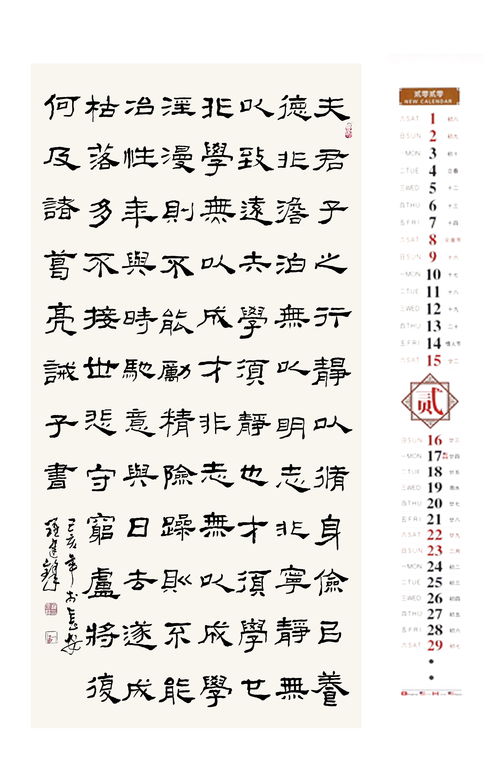 夫君子之行靜以脩身儉㠯養
德非澹泊無以明志非寧靜無
以致遠夫學須靜也才須學也
非學無以成才非志無以成學
淫漫則不能勵精險躁則不能
冶性年與時馳意與日去遂成
枯落多不接世悲守窮廬將復
何及諸葛亮誡子書
己亥年於長安
贰零贰零
NEW CALENDAR
六 SAT. 1 初八
日 SUN 2 初九
一 MON 3 初十
二 TUE 4 立春
三 WED 5 十二
四 THU 6 十三
五 FRI 7 十四
六 SAT 8 元宵节
日 SUN 9 十六
一 MON 10 十七
二 TUE 11 十八
三 WED 12 十九
四 THU 13 二十
五 FRI 14 情人节
六 SAT 15 廿二
贰
日 SUN 16 廿三
一 MON 17 廿四
二 TUE 18 廿五
三 WED 19 雨水
四 THU 20 廿七
五 FRI 21 廿八
六 SAT 22 廿九
日 SUN 23 二月
一 MON 24 初二
二 TUE 25 初三
三 WED 26 初四
四 THU 27 初五
五 FRI 28 初六
六 SAT 29 初七